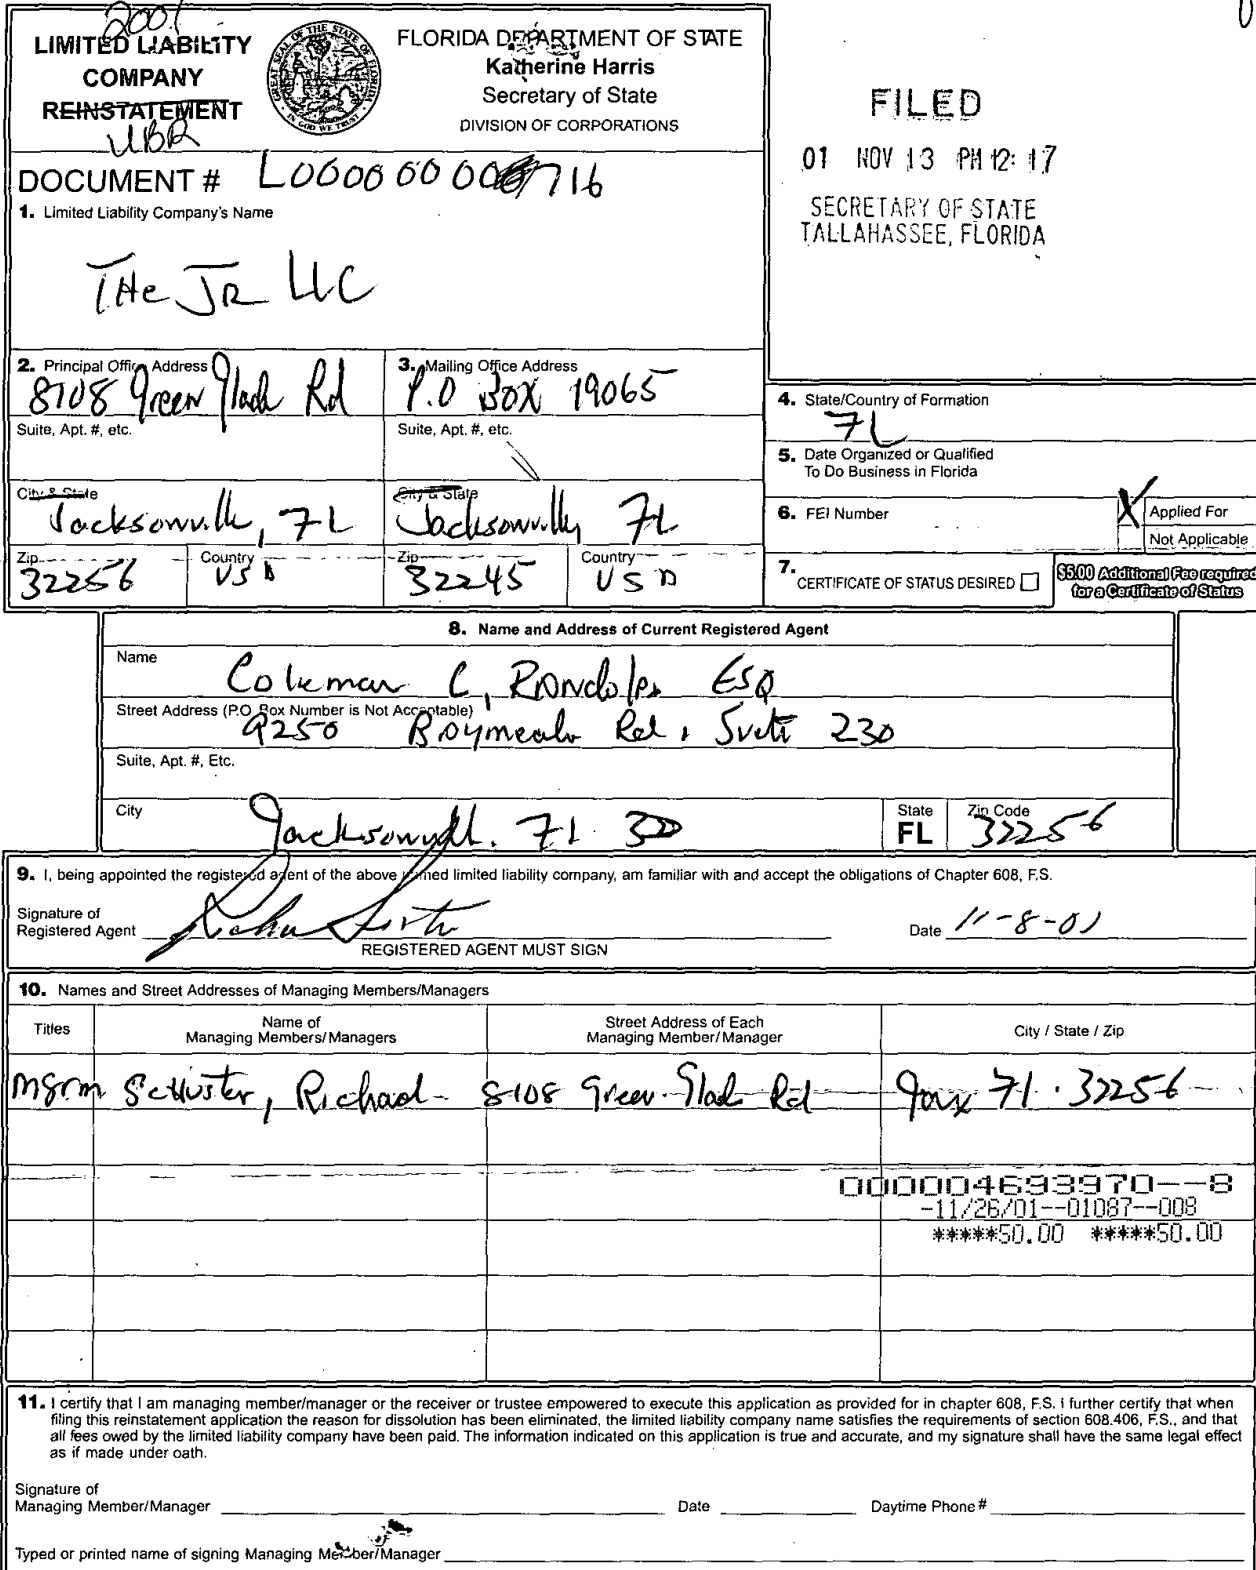 2001
LIMITED LIABILITY
COMPANY
REINSTATEMENT
UBR
FLORIDA DEPARTMENT OF STATE
Katherine Harris
Secretary of State
DIVISION OF CORPORATIONS
GREAT SEAL OF THE STATE OF FLORIDA
IN GOD WE TRUST
FILED
01 NOV 13 PM 12: 17
SECRETARY OF STATE
TALLAHASSEE, FLORIDA
DOCUMENT #
716
1. Limited Liability Company's Name
THe JR LLC
2. Principal Office Address
8108 Green Glade Rd
Suite, Apt. #, etc.
City & State
Jacksonville, FL
Zip
32256
Country
USA
3. Mailing Office Address
P.O Box 19065
Suite, Apt. #, etc.
City & State
Jacksonville, FL
Zip
32245
Country
USA
4. State/Country of Formation
FL
5. Date Organized or Qualified
To Do Business in Florida
6. FEI Number
X Applied For
Not Applicable
7. CERTIFICATE OF STATUS DESIRED
$5.00 Additional Fee required
for a Certificate of Status
8. Name and Address of Current Registered Agent
Name
Coleman C, Randolph ESQ
Street Address (P.O. Box Number is Not Acceptable)
9250 Baymeadows Rd, Suite 230
Suite, Apt. #, Etc.
City
Jacksonville. FL
State
FL
Zip Code
32256
9. I, being appointed the registered agent of the above named limited liability company, am familiar with and accept the obligations of Chapter 608, F.S.
Signature of
Registered Agent
REGISTERED AGENT MUST SIGN
Date 11-8-01
10. Names and Street Addresses of Managing Members/Managers
Titles
Name of
Managing Members/Managers
Street Address of Each
Managing Member/Manager
City / State / Zip
Mgrm Schuster, Richard 8108 Green Glade Rd Jax FL. 32256
000004693970--8
-11/26/01--01087--008
*****50.00 *****50.00
11. I certify that I am managing member/manager or the receiver or trustee empowered to execute this application as provided for in chapter 608, F.S. I further certify that when
filing this reinstatement application the reason for dissolution has been eliminated, the limited liability company name satisfies the requirements of section 608.406, F.S., and that
all fees owed by the limited liability company have been paid. The information indicated on this application is true and accurate, and my signature shall have the same legal effect
as if made under oath.
Signature of
Managing Member/Manager
Date
Daytime Phone #
Typed or printed name of signing Managing Member/Manager